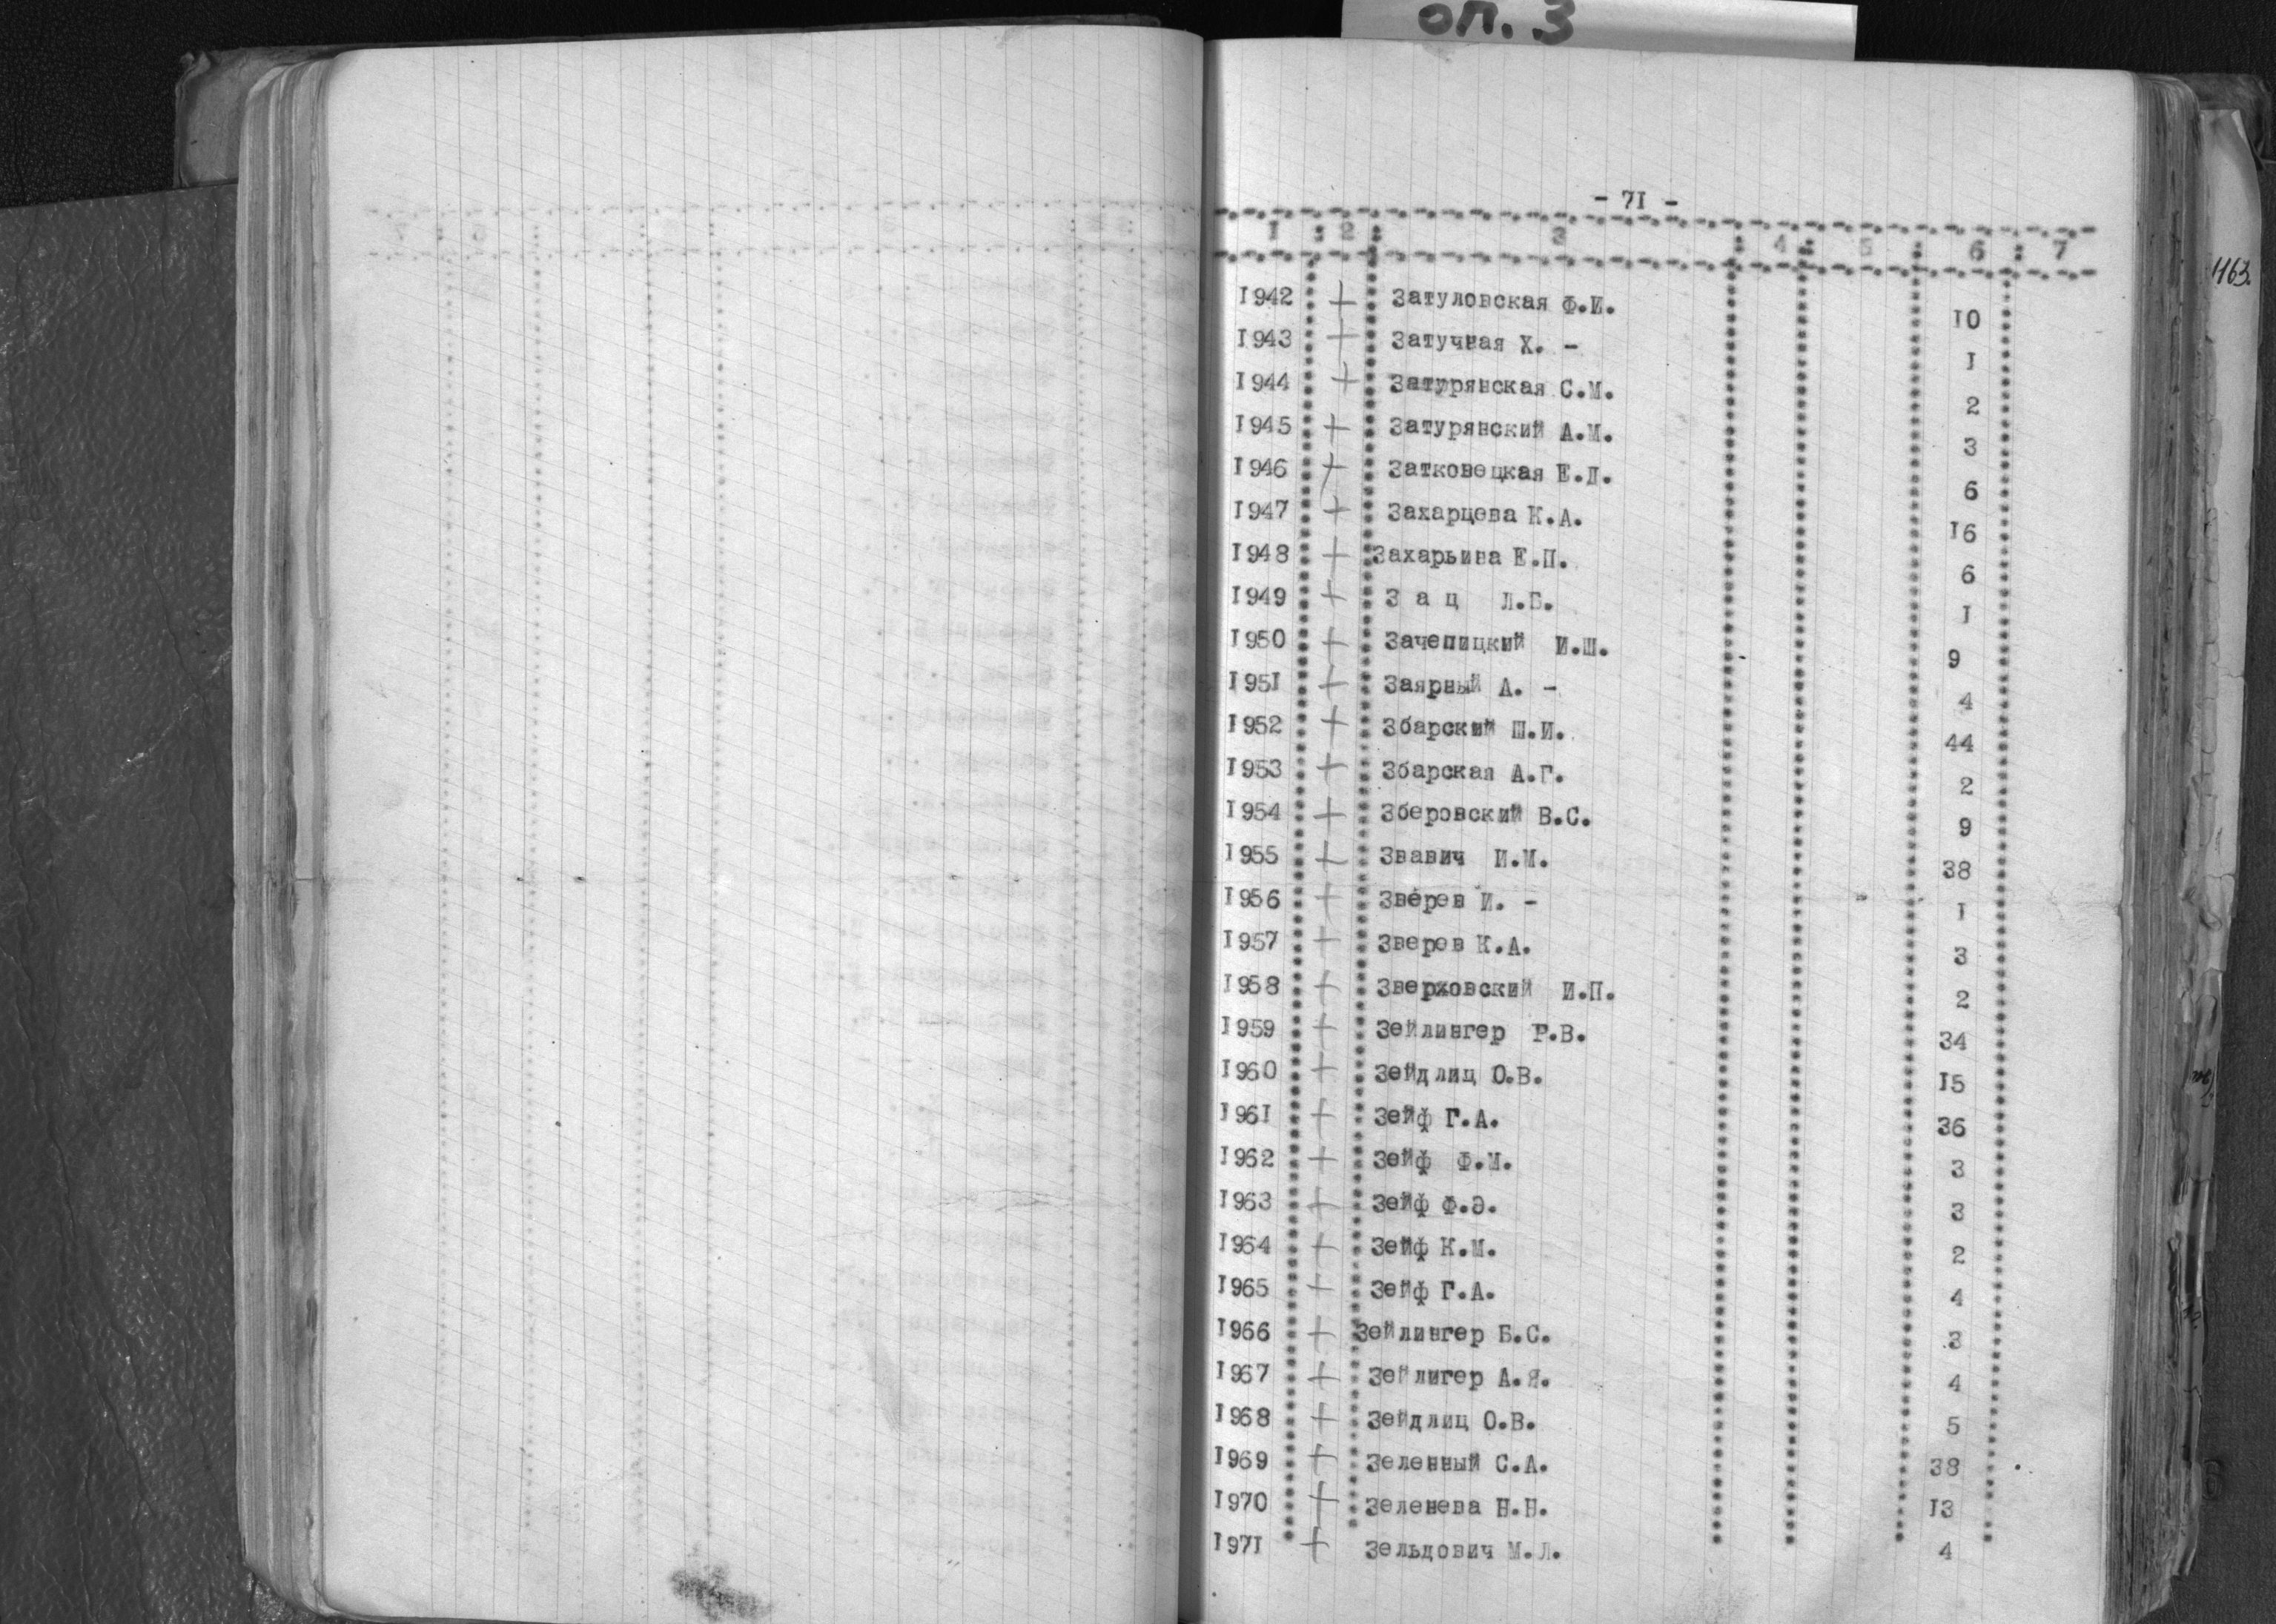 оп. 3
- 7I -
I : 2 : 3 : 4 : 5 : 6 : 7
1163
I942 + Затуловская Ф.И. IO
I943 + Затучная Х. - I
I944 + Затурянская С.М. 2
I945 + Затурянский А.М. 3
I946 + Затковецкая Е.Д. 6
I947 + Захарцева К.А. I6
I948 + Захарьина Е.П. 6
I949 + З а ц Л.Б. I
I950 + Зачепицкий И.Ш. 9
I95I + Заярный А. - 4
I952 + Збарский Ш.И. 44
I953 + Збарская А.Г. 2
I954 + Зберовский В.С. 9
I955 + Звавич И.М. 38
I956 + Зверев И. - I
I957 + Зверев К.А. 3
I958 + Зверховский И.П. 2
I959 + Зейлингер Р.В. 34
I960 + Зейдлиц О.В. I5
I96I + Зейф Г.А. 36
I962 + Зейф Ф.М. 3
I963 + Зейф Ф.Э. 3
I964 + Зейф К.М. 2
I965 + Зейф Г.А. 4
I966 + Зейлингер Б.С. 3
I967 + Зейлигер А.Я. 4
I968 + Зейдлиц О.В. 5
I969 + Зеленный С.А. 38
I970 + Зеленева Н.Н. I3
I97I + Зельдович М.Л. 4